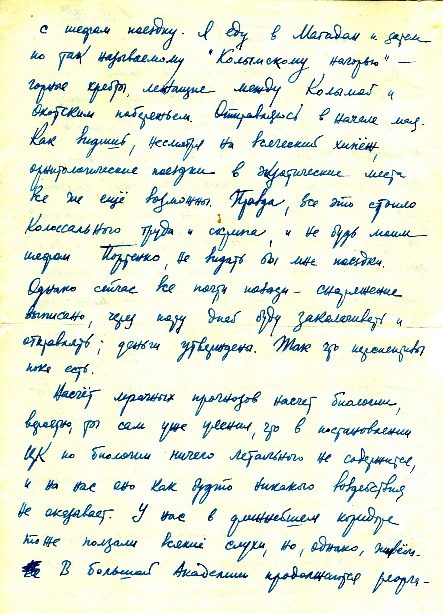 с шефом поездку. Я еду в Магадан и затем
по так называемому "Колымскому нагорью" —
горные хребты, лежащие между Колымой и
Охотским побережьем. Отправляюсь в начале мая.
Как видишь, несмотря на всяческий хипёж,
орнитологические поездки в экзотические места
все же ещё возможны. Правда, все это стоило
колоссального труда и скрипа, и не будь моим
шефом Портенко, не видать бы мне поездки.
Однако сейчас все почти позади — снаряжение
выписано, через пару дней буду заколачивать и
отправлять; деньги утверждены. Так что перспективы
пока есть.
Насчёт мрачных прогнозов насчет биологии,
вероятно, ты сам уже уяснил, что в постановлении
ЦК по биологии ничего летального не содержится,
и на нас оно как будто никакого воздействия
не оказывает. У нас в длиннейшем коридоре
тоже ползали всякие слухи, но, однако, живём.
В большой Академии продолжаются реорга-